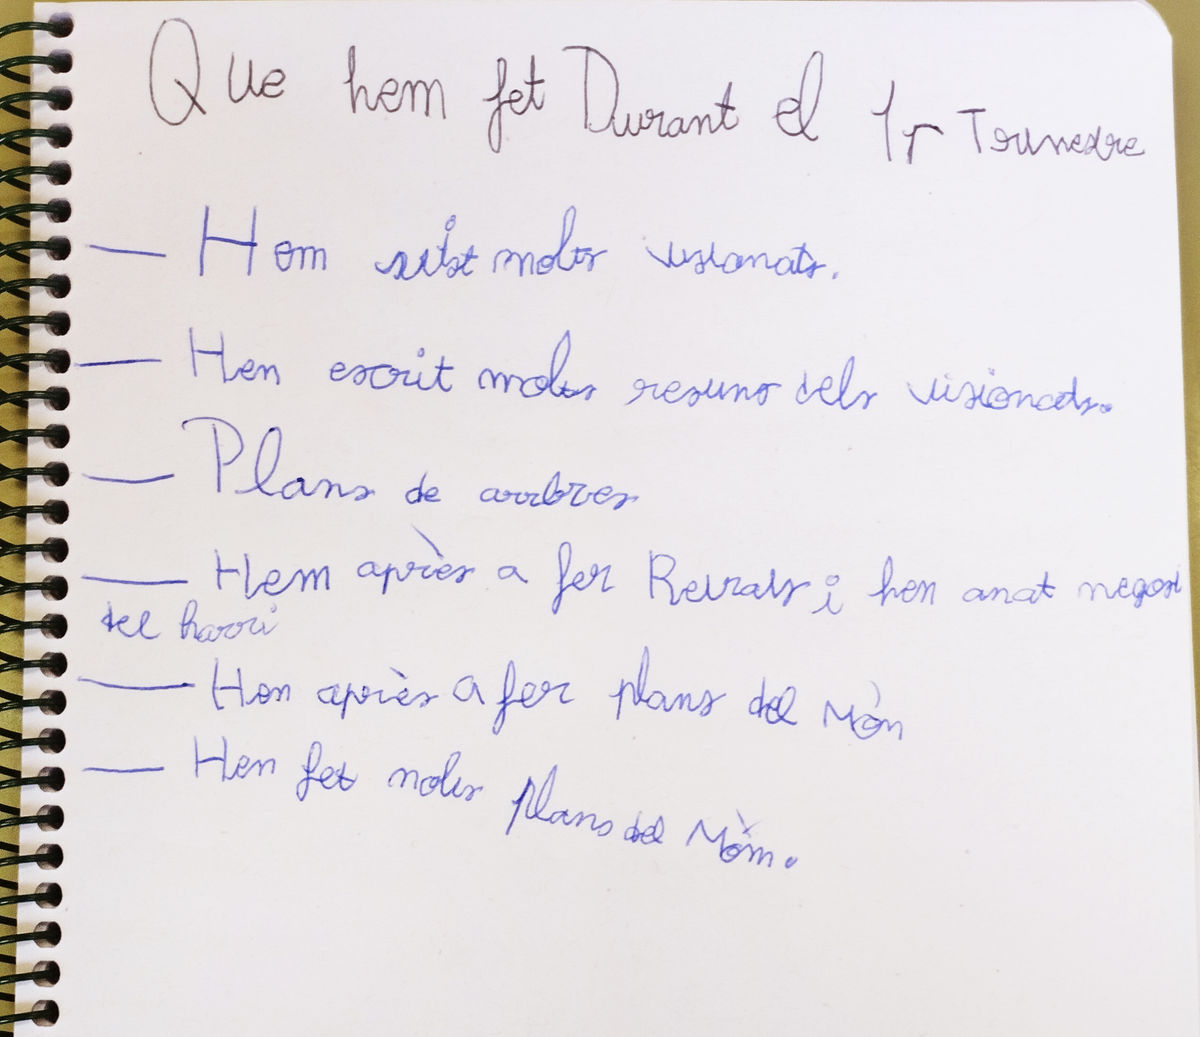 Que hem fet Durant el 1r Trimestre
— Hem vist molts visionats.
— Hen escrit molts resums dels visionats.
— Plans de arbres
— Hem après a fer Retrats i hen anat negosi
del barri
— Hen après a fer plans del Mòn
— Hen fet molts plans del Mòm.